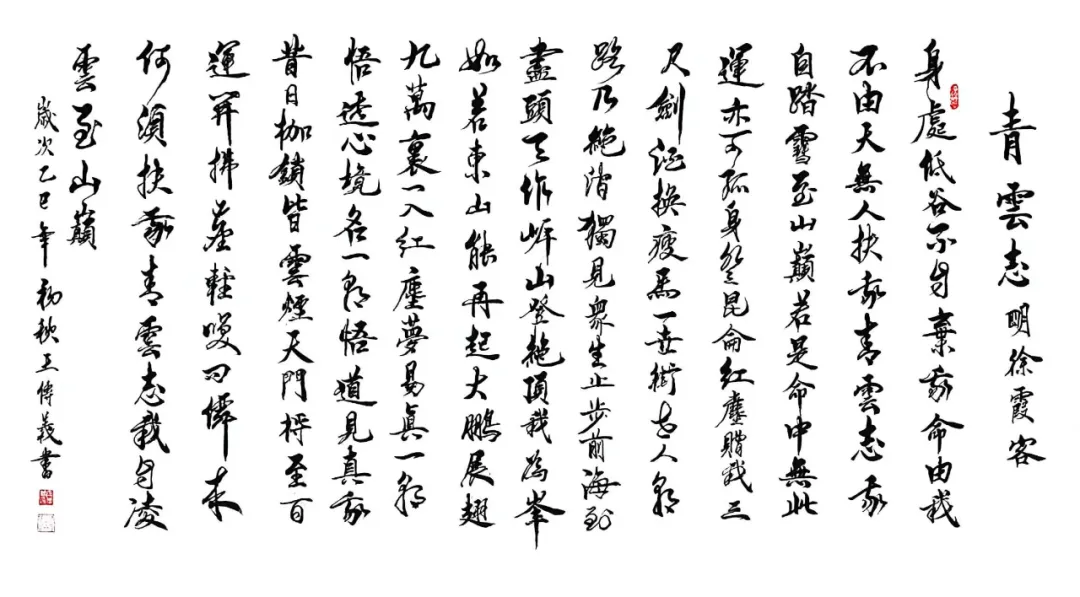 青雲志 明 徐霞客
身處低谷不自棄我命由我
不由天無人扶我青雲志我
自踏雪至山巔若是命中無此
運亦可孤身登昆侖紅塵贈我三
尺劍酒換瘦馬一世街 人
路乃絕 獨見眾生止步前海到
盡頭天作岸山登絕頂我為峯
如若東山能再起大鵬展翅
九萬裏一入紅塵夢易真一朝
悟透心境名一朝悟道見真我
昔日枷鎖皆雲煙天門將至百
運開拂塵輕嘆問 來
何須扶我青雲志我自凌
雲至山巔
歲次乙巳年初秋王傳義書